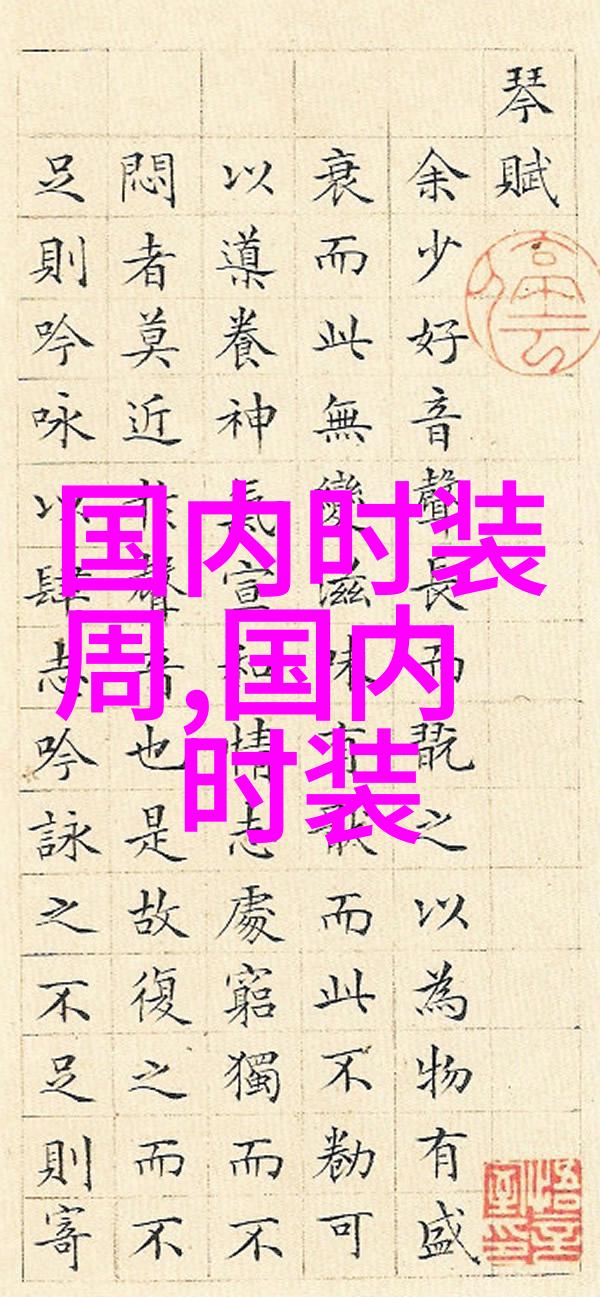 琴賦
余少好音聲長而翫之以為物有盛
衰而此無變滋味有猒而此不勌可
以導養神氣宣和情志處窮獨而不
悶者莫近於聲音也是故復之而不
足則吟咏以肆志吟詠之不足則寄
国内时装
周,国内
时装